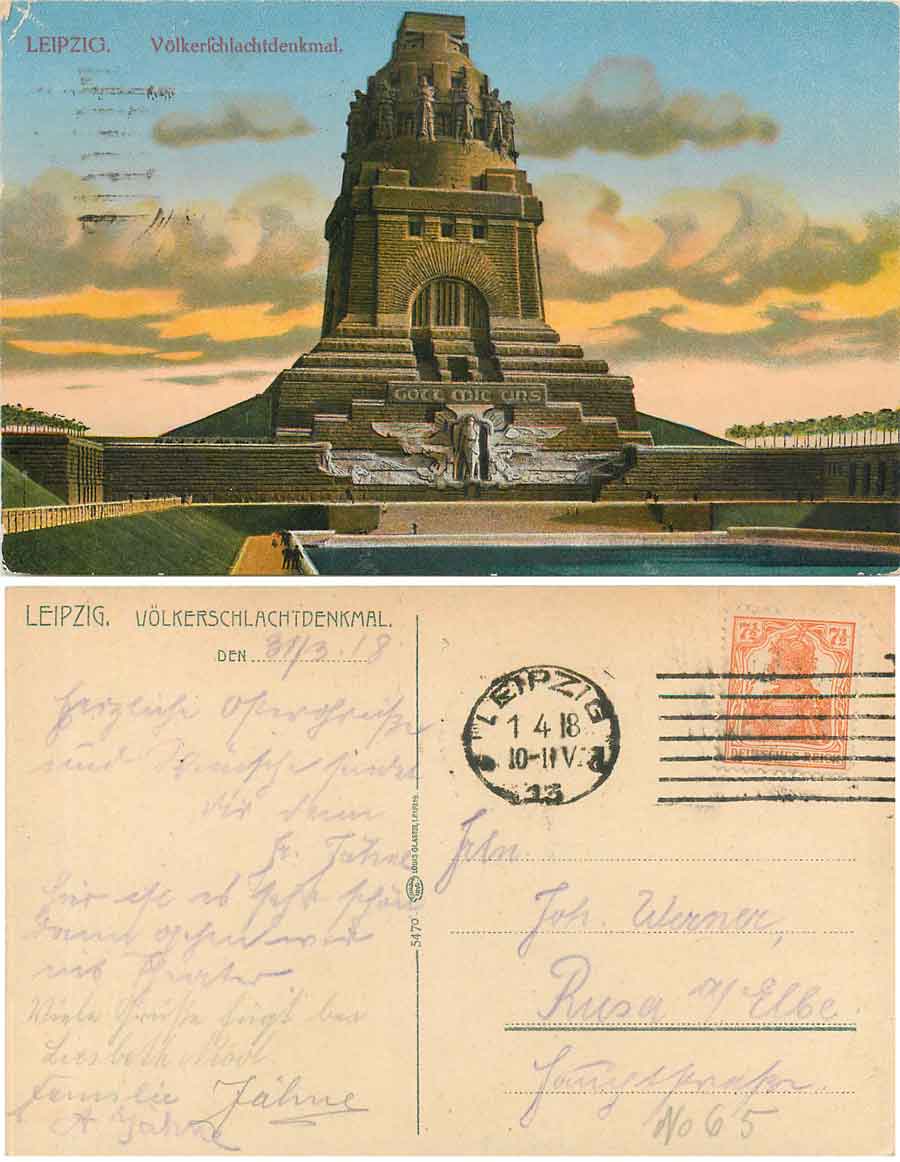 LEIPZIG. Völkerschlachtdenkmal.
GOTT MIT UNS
LEIPZIG. VÖLKERSCHLACHTDENKMAL.
DEN 31/3. 18
Herzliche Ostergrüße
und Wünsche sendet
dir dein
Fr. Jähne
Hier ist es sehr schön
dann gehen wir
ins Theater
Viele Grüße fügt bei
Liesbeth
Familie Jähne
A Jähne
5470 LOUIS GLASER, LEIPZIG.
LEIPZIG
1 4 18
10-11 V.
13
7½ 7½
DEUTSCHES REICH
Frln.
Joh. Werner,
Riesa a/Elbe
Hauptstraße.
No 65